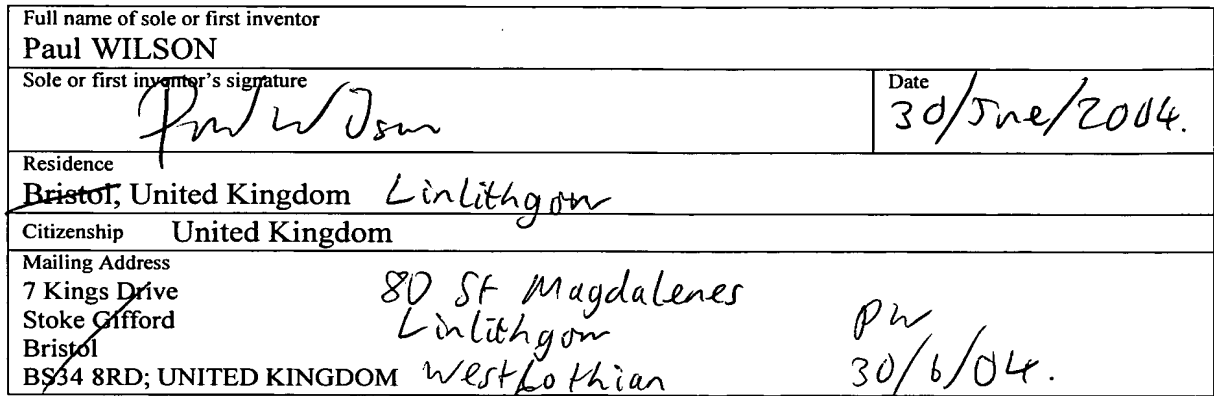 Full name of sole or first inventor
Paul WILSON
Sole or first inventor's signature
Paul Wilson
Date
30/June/2004.
Residence
Bristol, United Kingdom Linlithgow
Citizenship United Kingdom
Mailing Address
7 Kings Drive
Stoke Gifford
Bristol
BS34 8RD; UNITED KINGDOM
80 St Magdalenes
Linlithgow
West Lothian
PW
30/6/04.